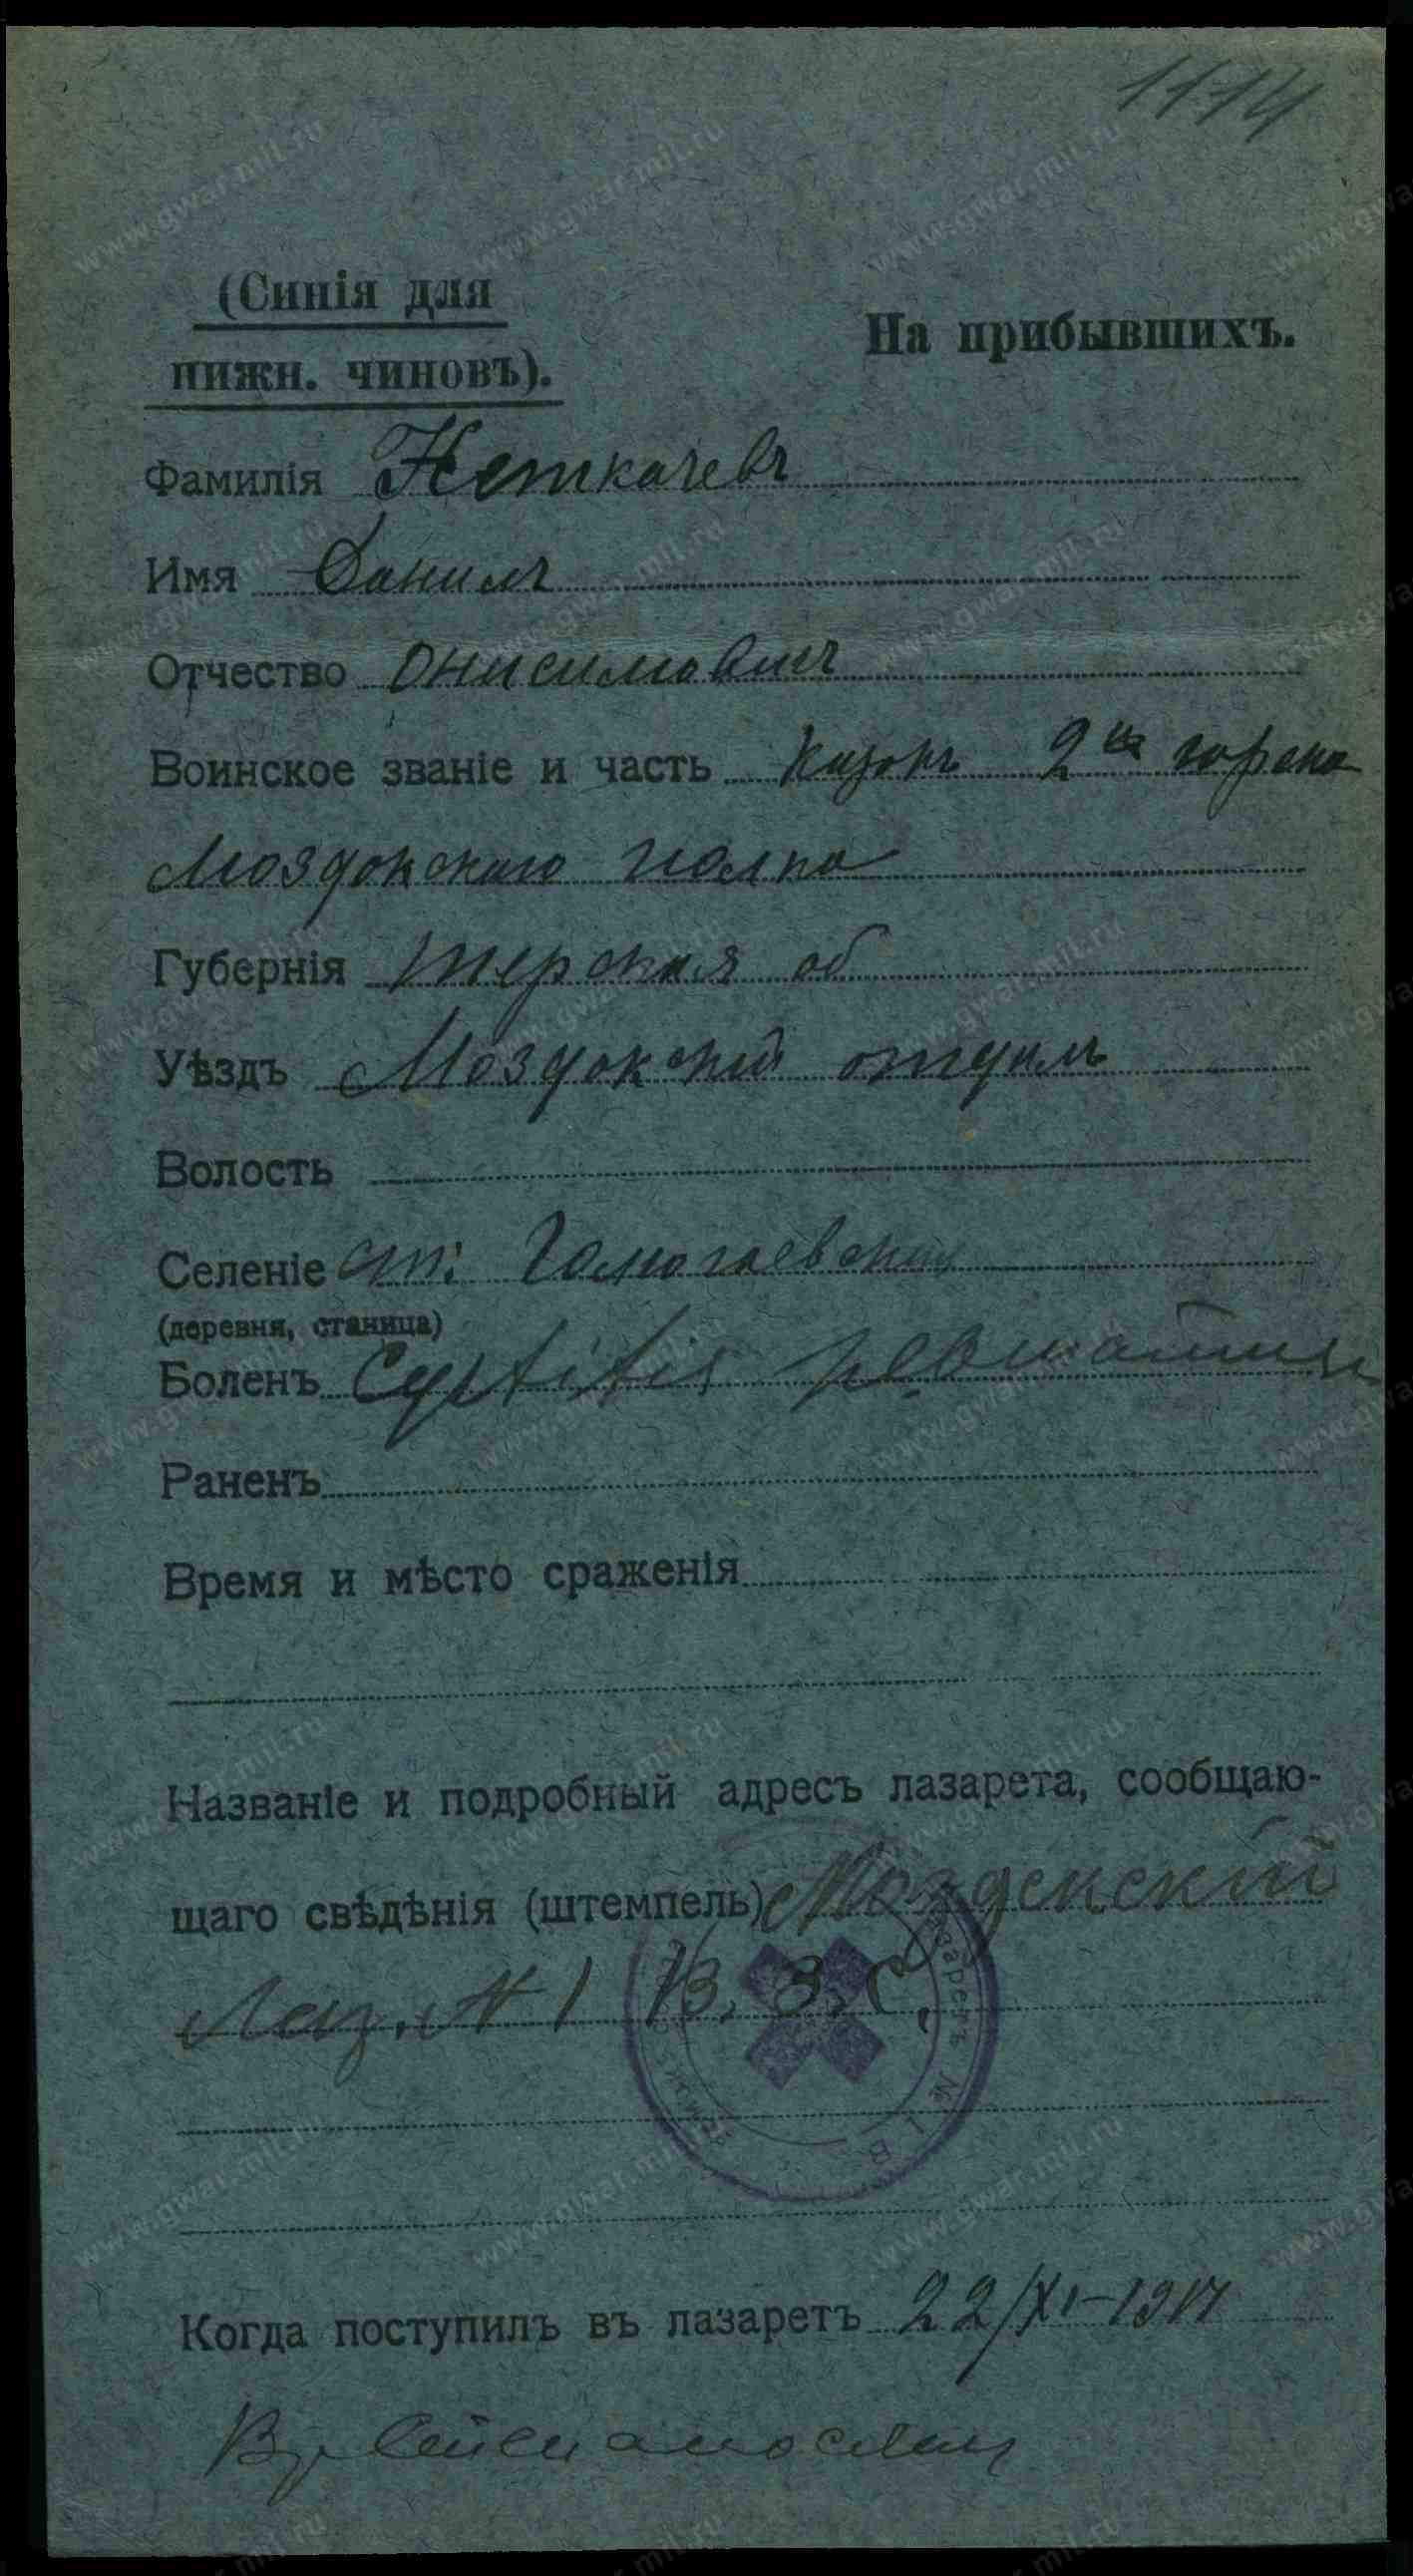 1114
(Синія для
нижн. чиновъ).
На прибывшихъ.
Фамилія Неткачевъ
Имя Данилъ
Отчество Онисимовичъ
Воинское званіе и часть Казакъ 2й
Моздокскаго полка
Губернія Терская об
Уѣздъ Моздокскій отдѣлъ
Волость
Селеніе ст.
(деревня, станица)
Боленъ Cystitis
Раненъ
Время и мѣсто сраженія
Названіе и подробный адресъ лазарета, сообщаю-
щаго свѣдѣнія (штемпель)
Лаз. № 1 В. З. С.
Когда поступилъ въ лазаретъ 22/XI-1917